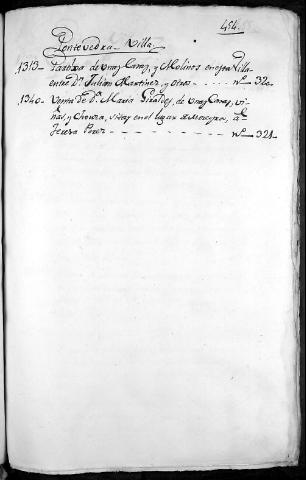 454.
Pontevedra Villa
1313 - Partixa de unas Casas, y Molinos en esa Villa
entre Dn. Julian Martinez, y otros - - - - - nº 320.
1340 - Venta de Da. Maria Giraldez, de unas Casas, vi-
ñas, y sitas en el lugar de
Teresa Perez - - - - - - - - - nº 321.